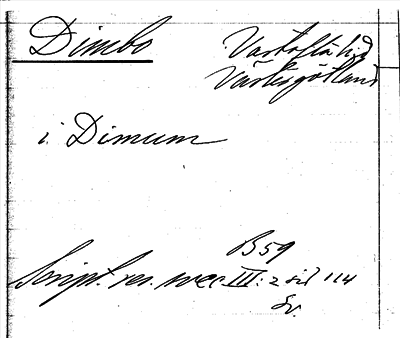 Dimbo
Vartofta hd
Västergötland
i Dimum
B 59
Script. rer. svec. III: 2 sid 114
Sv.